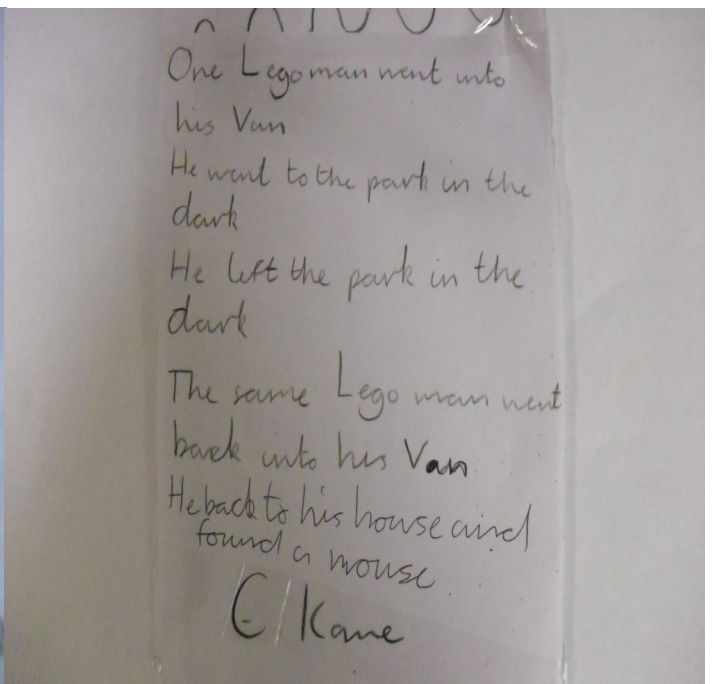 One Lego man went into
his Van
He went to the park in the
dark
He left the park in the
dark
The same Lego man went
back into his Van
He back to his house and
found a mouse
E Kane